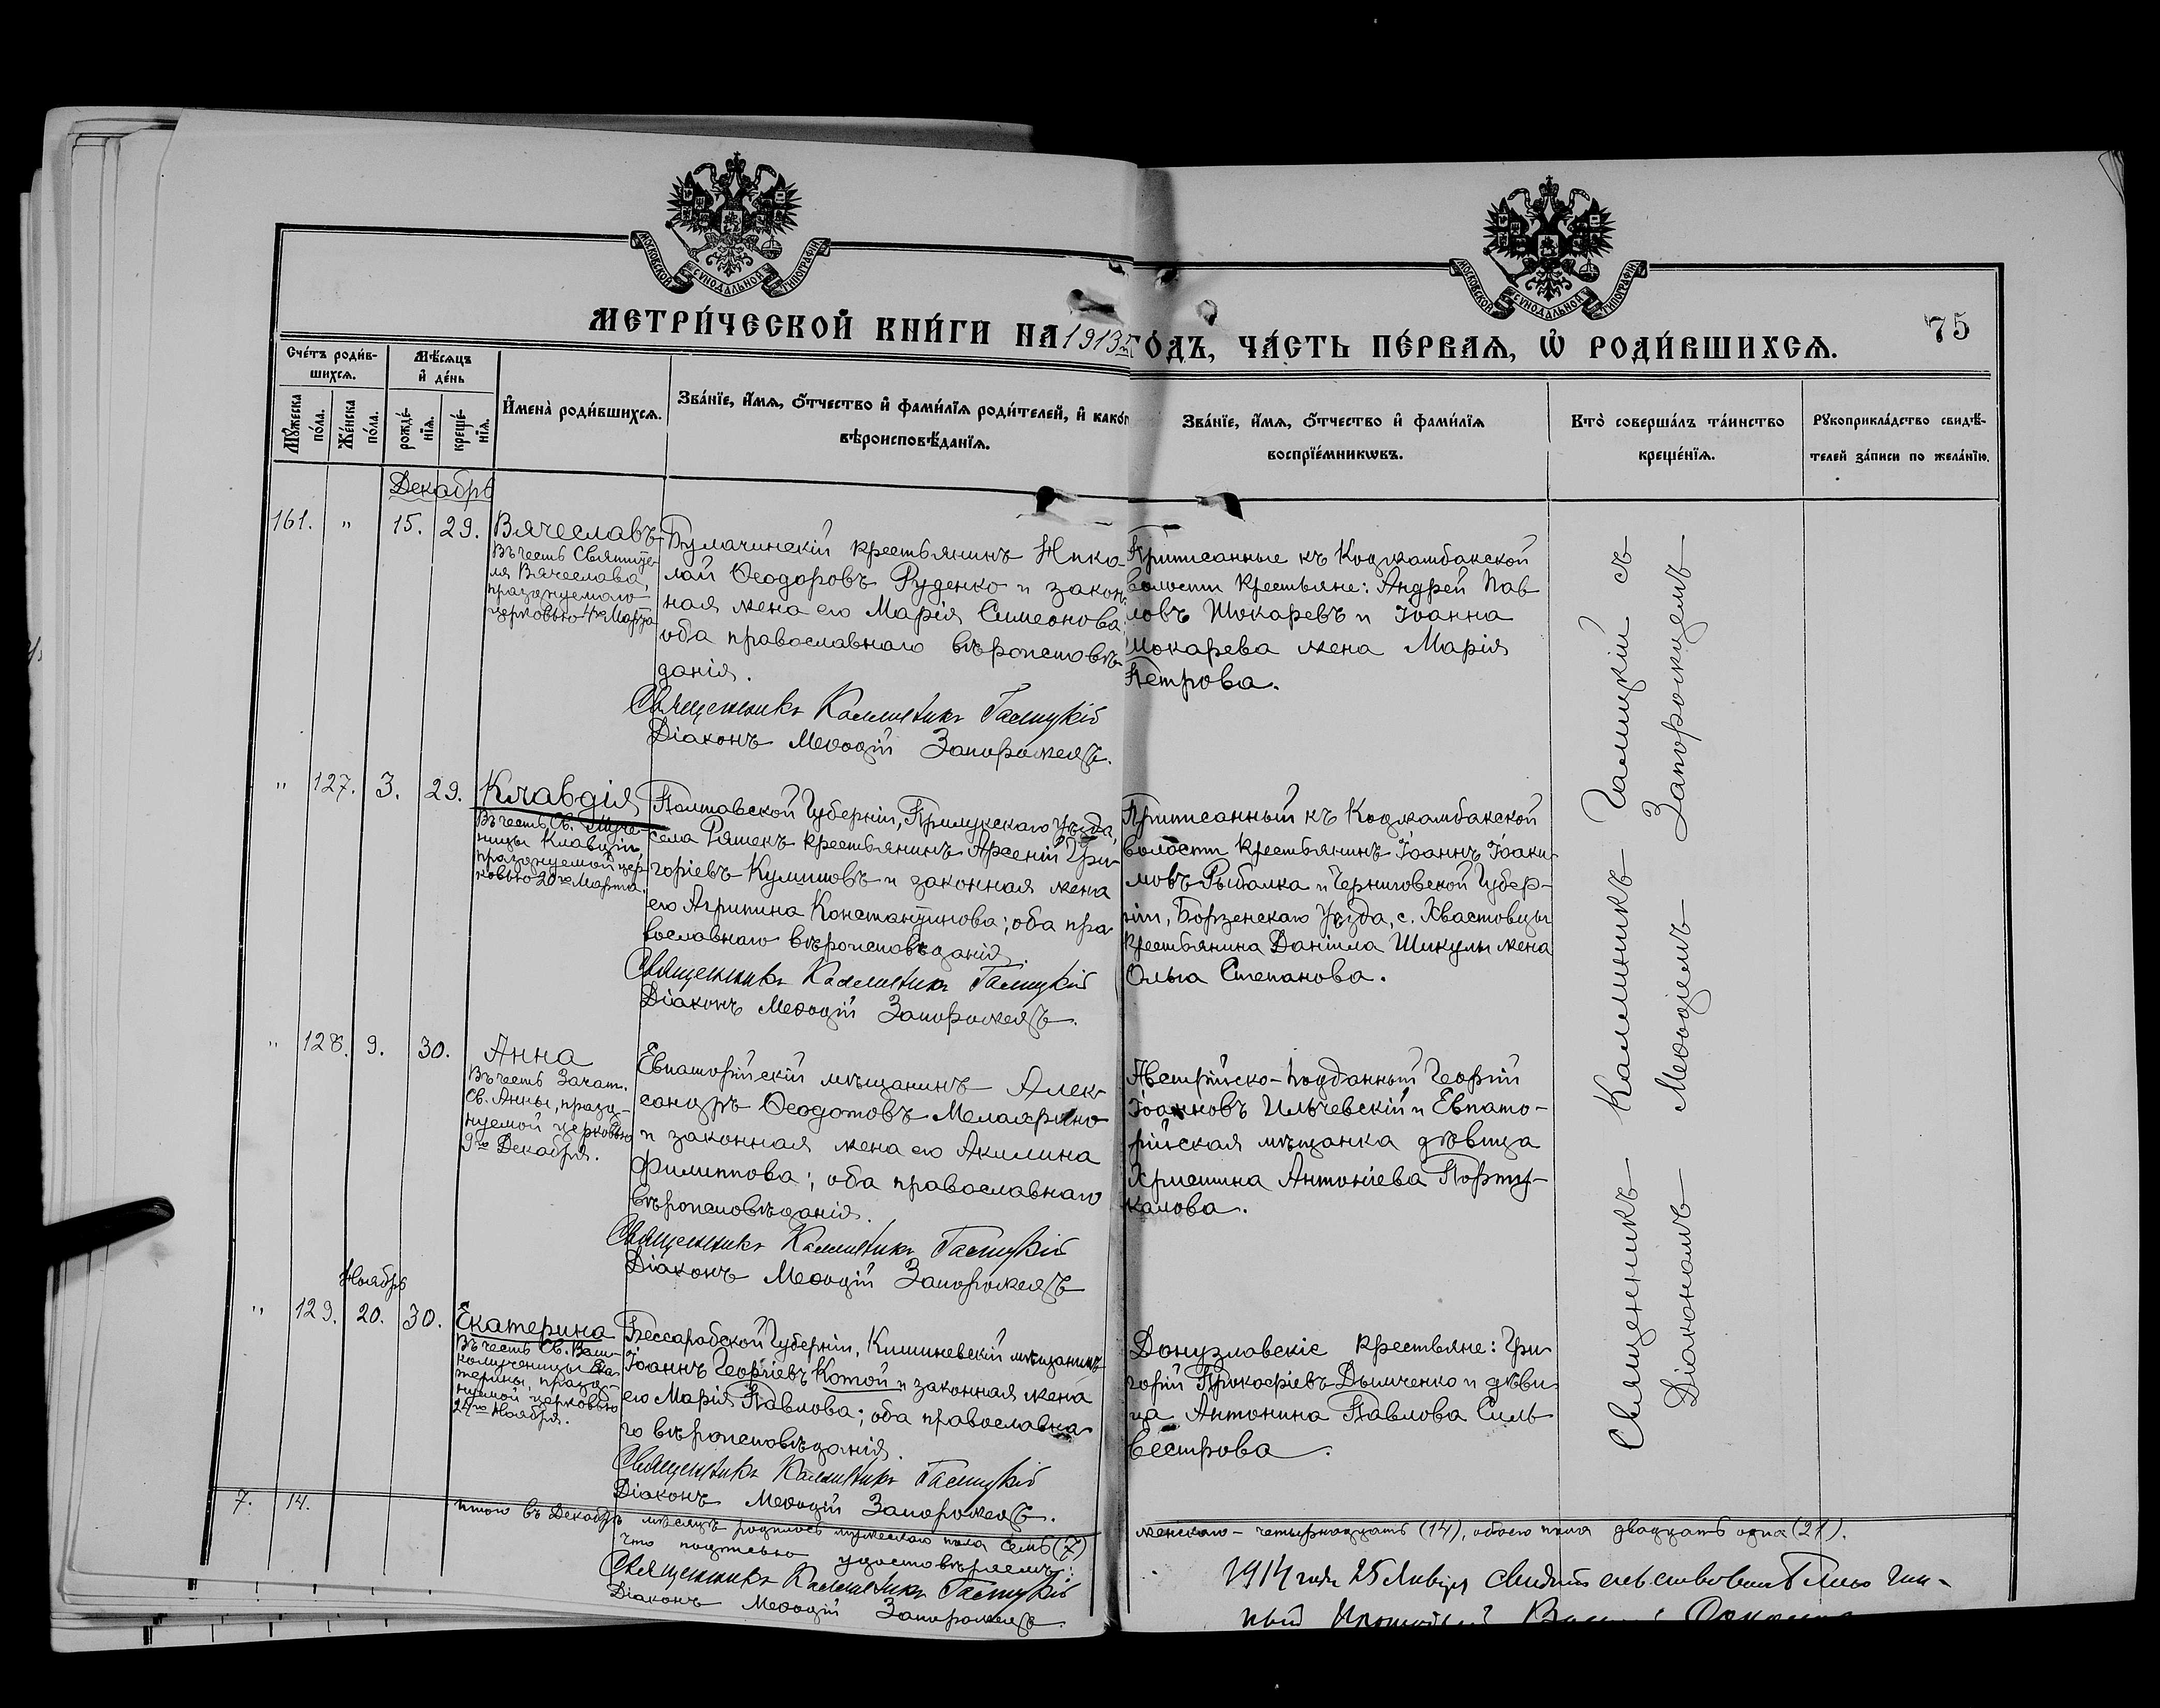 МОСКОВСКОЙ СУНОДАЛЬНОЙ ТИПОГРАФІИ
МОСКОВСКОЙ СУНОДАЛЬНОЙ ТИПОГРАФІИ
МЕТРИ́ЧЕСКОЙ КНИ́ГИ НА 1913 ГО́ДЪ, ЧА́СТЬ ПЕ́РВАѦ, Ѡ҆ РОДИ́ВШИХСѦ.
75
Сче́тъ роди́в-
шихсѧ.
Мѣ́сѧцъ
и҆ де́нь
Мꙋ́жеска
по́ла.
Же́нска
по́ла.
рожде́-
нїѧ.
креще́-
нїѧ.
И҆мена̀ роди́вшихсѧ.
Зва́нїе, и҆́мѧ, ѻ҆́тчество и҆ фами́лїѧ роди́телей, и҆ како́г
вѣроисповѣ́данїѧ.
Зва́нїе, и҆́мѧ, ѻ҆́тчество и҆ фами́лїѧ
воспрїе́мникѡвъ.
Кто̀ соверша́лъ та́инство
креще́нїѧ.
Рꙋкоприкла́дство свидѣ́-
телей за́писи по жела́нїю.
Декабрь
161. " 15. 29. Вячеславъ
Въ честь Святите-
ля Вячеслава,
празднуемаго
церковью 4го Марта
Булачинскій крестьянинъ Нико-
лай Ѳеодоровъ Руденко и закон-
ная жена его Марія Симеонова;
оба православнаго вѣроисповѣ-
данія.
Священникъ Каллиникъ Галицкій
Діаконъ Меѳодій Запорожецъ.
Приписанные къ Коджамбакской
волости крестьяне: Андрей Пав-
ловъ Шокаревъ и Іоанна
Шокарева жена Марія
Петрова.
" 127. 3. 29. Клавдія
Въ честь Св. Муче-
ницы Клавдіи,
празднуемой цер-
ковью 20го Марта.
Полтавской Губерніи, Прилукскаго уѣзда,
села Ряшекъ крестьянинъ Арсеній Гри-
горіевъ Кулишовъ и законная жена
его Агрипина Константинова; оба пра-
вославнаго вѣроисповѣданія.
Священникъ Каллиникъ Галицкій
Діаконъ Меѳодій Запорожецъ.
Приписанный къ Коджамбакской
волости крестьянинъ Іоаннъ Іоаки-
мовъ Рыбалка и Черниговской Губер-
ніи, Борзенскаго уѣзда, с. Хвастовцы
крестьянина Даніила Шикулы жена
Ольга Степанова.
" 128. 9. 30. Анна
Въ честь Зачат.
Св. Анны, празд-
нуемой церковью
9го Декабря.
Евпаторійскій мѣщанинъ Алек-
сандръ Ѳеодотовъ
и законная жена его Акилина
Филиппова; оба православнаго
вѣроисповѣданія.
Священникъ Каллиникъ Галицкій
Діаконъ Меѳодій Запорожецъ
Австрійско-подданный Георгій
Іоанновъ Ильчевскій и Евпато-
рійская мѣщанка дѣвица
Христина Антоніева Порту-
калова.
Ноябрь
" 129. 20. 30. Екатерина
Въ честь Св. Вели-
комученицы Ека-
терины, празд-
нуемой церковью
24го Ноября.
Бессарабской Губерніи, Кишиневскій мѣщанинъ
Іоаннъ Георгіевъ Котой и законная жена
его Марія Павлова; оба православна-
го вѣроисповѣданія.
Священникъ Каллиникъ Галицкій
Діаконъ Меѳодій Запорожецъ.
Донузлавскіе крестьяне: Гри-
горій Прокофіевъ Дымченко и дѣви-
ца Антонина Павлова Силь-
вестрова.
Священникъ Каллиникъ Галицкій съ
Діакономъ Меѳодіемъ Запорожцемъ
7. 14. Итого въ Декабрѣ мѣсяцѣ родилось мужескаго пола семь (7)
женскаго - четырнадцать (14), обоего пола двадцать одна (21).
что подписью удостовѣряемъ:
Священникъ Каллиникъ Галицкій
Діаконъ Меѳодій Запорожецъ.
1914 года 25 Января